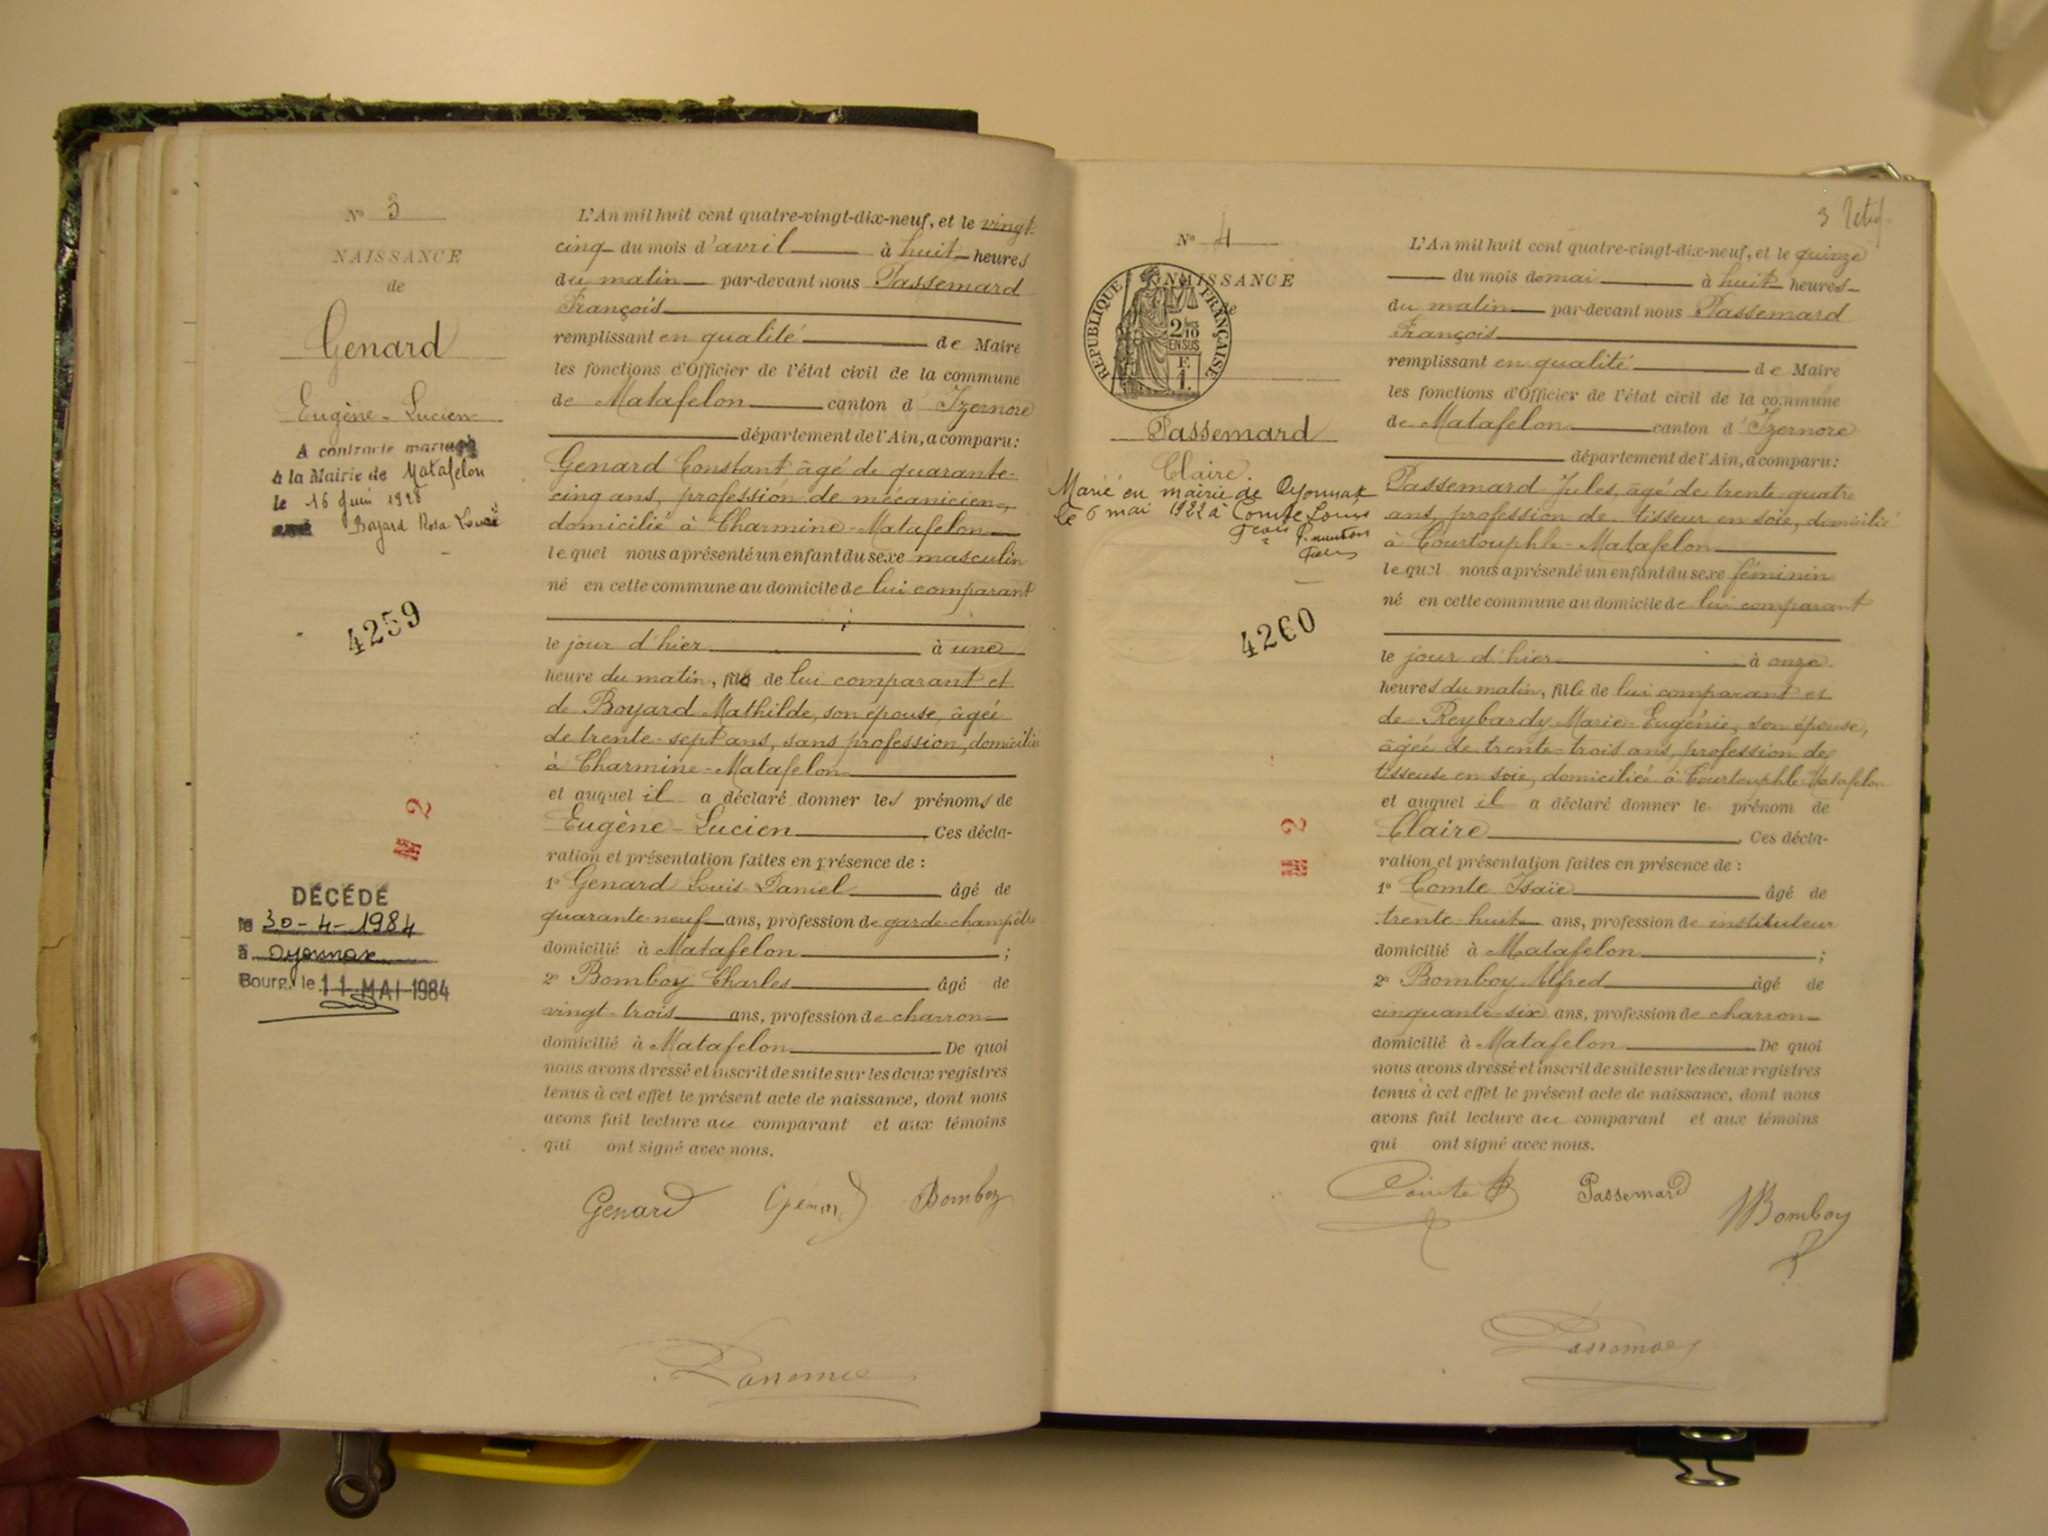 N° 3
NAISSANCE
de
Genard
Eugène-Lucien
A contracté mariage
à la Mairie de Matafelon
le 16 Juin 1928
avec Boyard Rosa Louise
4259
2
DÉCÉDÉ
le 30-4-1984
à Oyonnax
Bourg, le 11 MAI 1984
L'An mil huit cent quatre-vingt-dix-neuf, et le vingt-
cinq du mois d'avril à huit heures
du matin par-devant nous Passemard
François
remplissant en qualité de Maire
les fonctions d'Officier de l'état civil de la commune
de Matafelon canton d'Izernore
département de l'Ain, a comparu:
Genard Constant âgé de quarante-
cinq ans, profession de mécanicien,
domicilié à Charmine-Matafelon
lequel nous a présenté un enfant du sexe masculin
né en cette commune au domicile de lui comparant
le jour d'hier à une
heure du matin, fils de lui comparant et
de Boyard Mathilde, son épouse, âgée
de trente-sept ans, sans profession, domiciliée
à Charmine-Matafelon
et auquel il a déclaré donner les prénoms de
Eugène-Lucien Ces décla-
ration et présentation faites en présence de :
1° Genard Louis Daniel âgé de
quarante-neuf ans, profession de garde-champêtre
domicilié à Matafelon ;
2° Bomboy Charles âgé de
vingt-trois ans, profession de charron
domicilié à Matafelon De quoi
nous avons dressé et inscrit de suite sur les deux registres
tenus à cet effet le présent acte de naissance, dont nous
avons fait lecture au comparant et aux témoins
qui ont signé avec nous.
Genard Genard Bomboy
3
N° 4
NAISSANCE
de
RÉPUBLIQUE FRANÇAISE
2/10
EN SUS
F.
1.
Passemard
Claire.
Marié en mairie de Oyonnax
le 6 mai 1922 à Comte Louis
4260
2
L'An mil huit cent quatre-vingt-dix-neuf, et le quinze
du mois de mai à huit heures
du matin par-devant nous Passemard
François
remplissant en qualité de Maire
les fonctions d'Officier de l'état civil de la commune
de Matafelon canton d'Izernore
département de l'Ain, a comparu:
Passemard Jules, âgé de trente-quatre
ans, profession de tisseur en soie, domicilié
à Courtouphle-Matafelon
lequel nous a présenté un enfant du sexe féminin
né en cette commune au domicile de lui comparant
le jour d'hier à onze
heures du matin, fille de lui comparant et
de Reybardy Marie-Eugénie, son épouse,
âgée de trente-trois ans, profession de
tisseuse en soie, domiciliée à Courtouphle-Matafelon
et auquel il a déclaré donner le prénom de
Claire Ces décla-
ration et présentation faites en présence de :
1° Comte Isaïe âgé de
trente-huit ans, profession de instituteur
domicilié à Matafelon ;
2° Bomboy Alfred âgé de
cinquante-six ans, profession de charron
domicilié à Matafelon De quoi
nous avons dressé et inscrit de suite sur les deux registres
tenus à cet effet le présent acte de naissance, dont nous
avons fait lecture au comparant et aux témoins
qui ont signé avec nous.
Comte Passemard Bomboy
Passemard